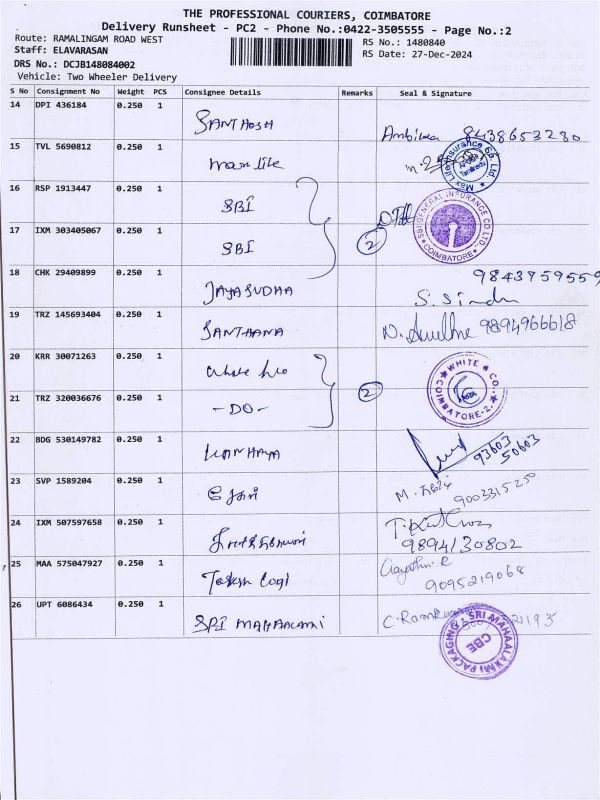 THE PROFESSIONAL COURIERS, COIMBATORE
Delivery Runsheet - PC2 - Phone No.:0422-3505555 - Page No.:2
Route: RAMALINGAM ROAD WEST
RS No.: 1480840
Staff: ELAVARASAN
RS Date: 27-Dec-2024
DRS No.: DCJB148084002
Vehicle: Two Wheeler Delivery
S No Consignment No Weight PCS Consignee Details Remarks Seal & Signature
14 DPI 436184 0.250 1 SANTHOSH Ambika 8438653230
15 TVL 5690812 0.250 1 max life
Max Life Insurance Co. Ltd.
16 RSP 1913447 0.250 1 SBI
SBI GENERAL INSURANCE CO. LTD. COIMBATORE
17 IXM 303405067 0.250 1 SBI 2
18 CHK 29409899 0.250 1 JAYASUDHA 9843759559
S. Sindhu
19 TRZ 145693404 0.250 1 SANTHANA 9894966618
20 KRR 30071263 0.250 1
WHITE & CO. COIMBATORE-2
21 TRZ 320036676 0.250 1 -DO- 2
22 BDG 530149782 0.250 1 KANHAYA 93603
50603
23 SVP 1589204 0.250 1 M. 9003315250
24 IXM 507597658 0.250 1
9894130802
25 MAA 575047927 0.250 1 Gayathri. R
9095219068
26 UPT 6086434 0.250 1 SRI MAHALAXMI
SRI MAHAALAXMI PACKAGING CBE